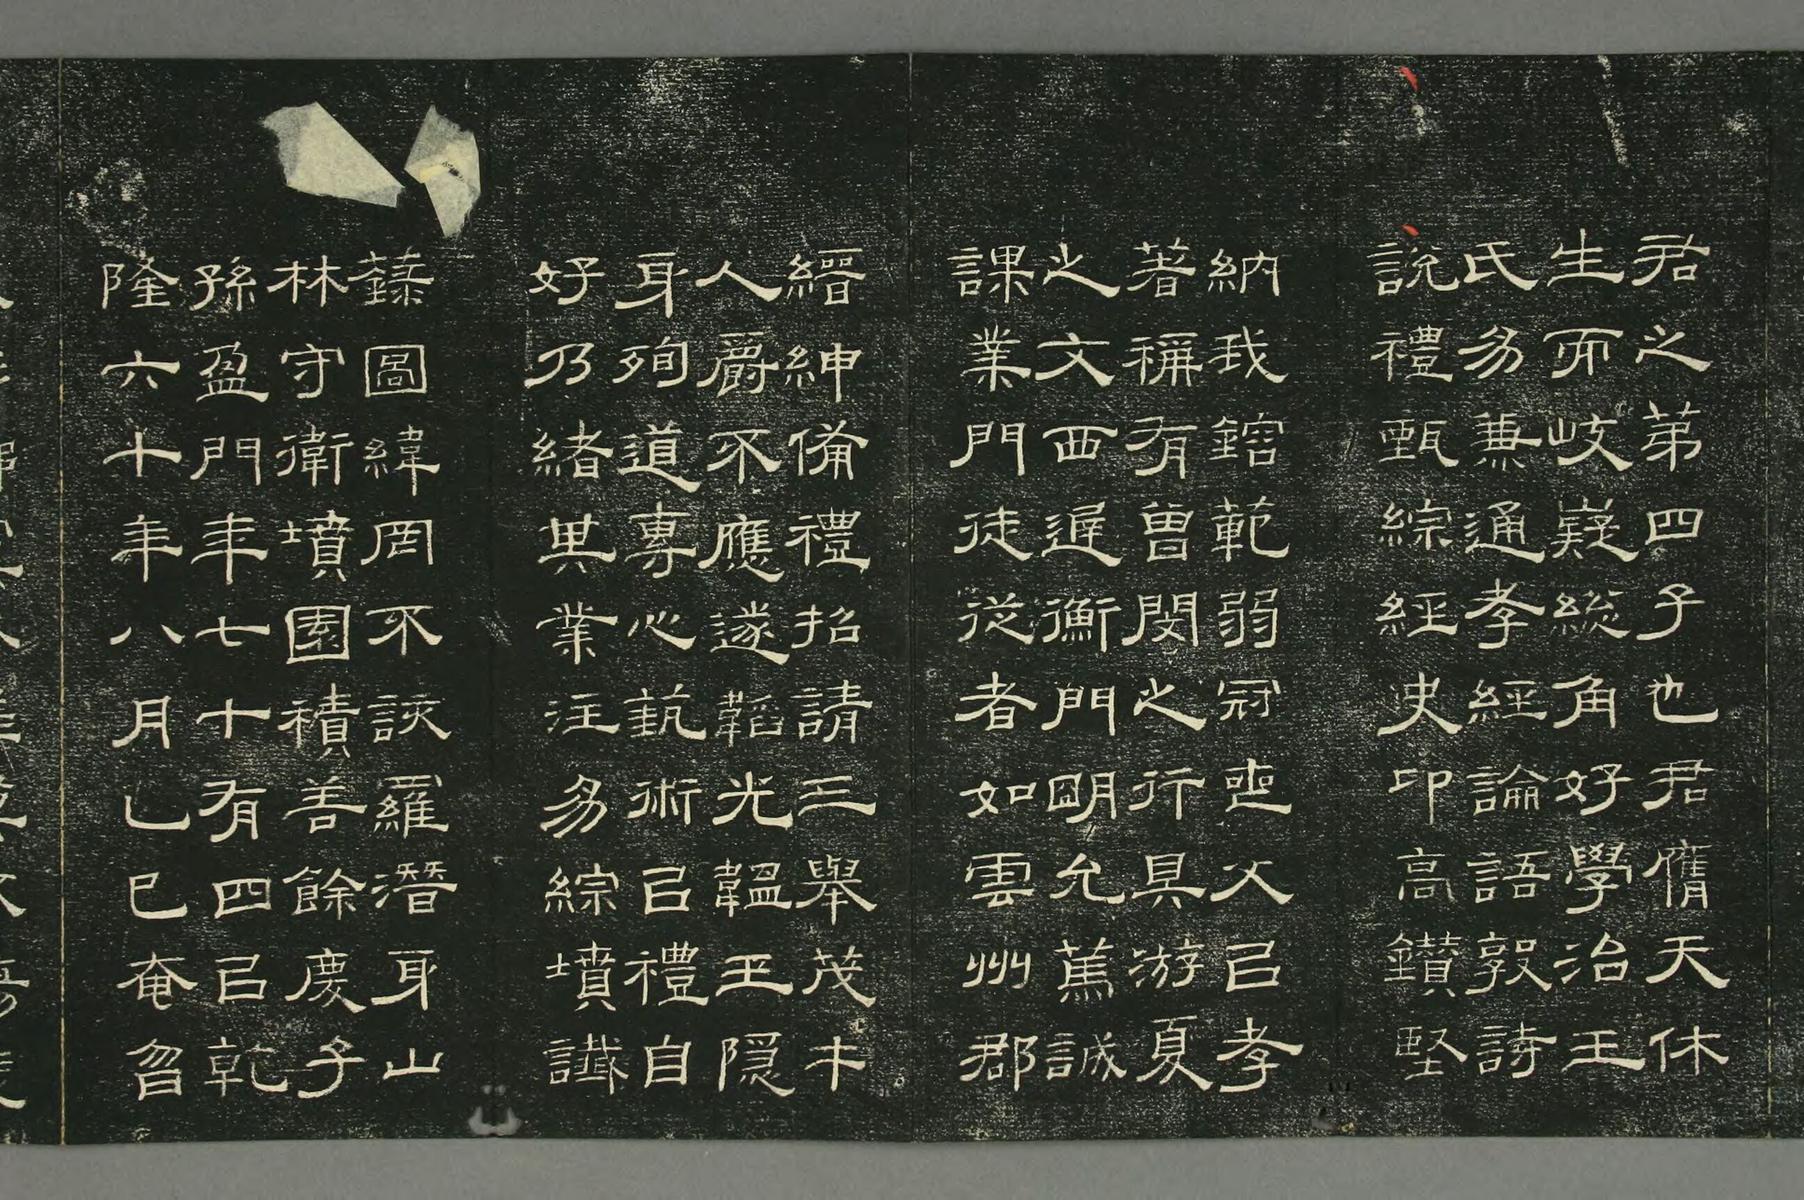 君之第四子也君膺天休
生而岐嶷總角好學治王
氏易兼通孝經論語敦詩
說禮甄綜經史卬高鑽堅
納我鎔範弱冠喪父㠯孝
著稱有曾閔之行具游夏
之文西遲衡門朙允篤誠
課業門徒從者如雲州郡
縉紳備禮招請三舉茂才
人爵不應遂韜光韞玉隱
身殉道專心埶術㠯禮自
好乃緒其業注易綜墳讖
籙圖緯罔不該羅潛身山
林守衛墳園積善餘慶子
孫盈門年七十有四㠯乾
隆六十年八月乙巳奄曶